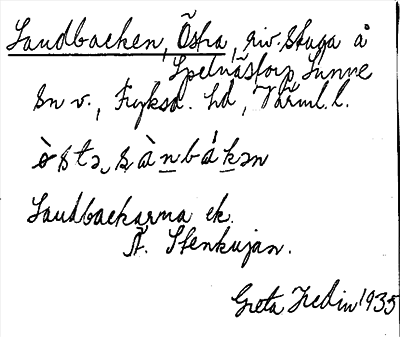 Sandbacken, Östra, riv. stuga å
Spelnästorp Sunne
Sn v., Fryksd. hd, Värml. l.
òstə sànbákən
Sandbackarna ek.
Ä. Stenkujan.
Greta Hedin 1935